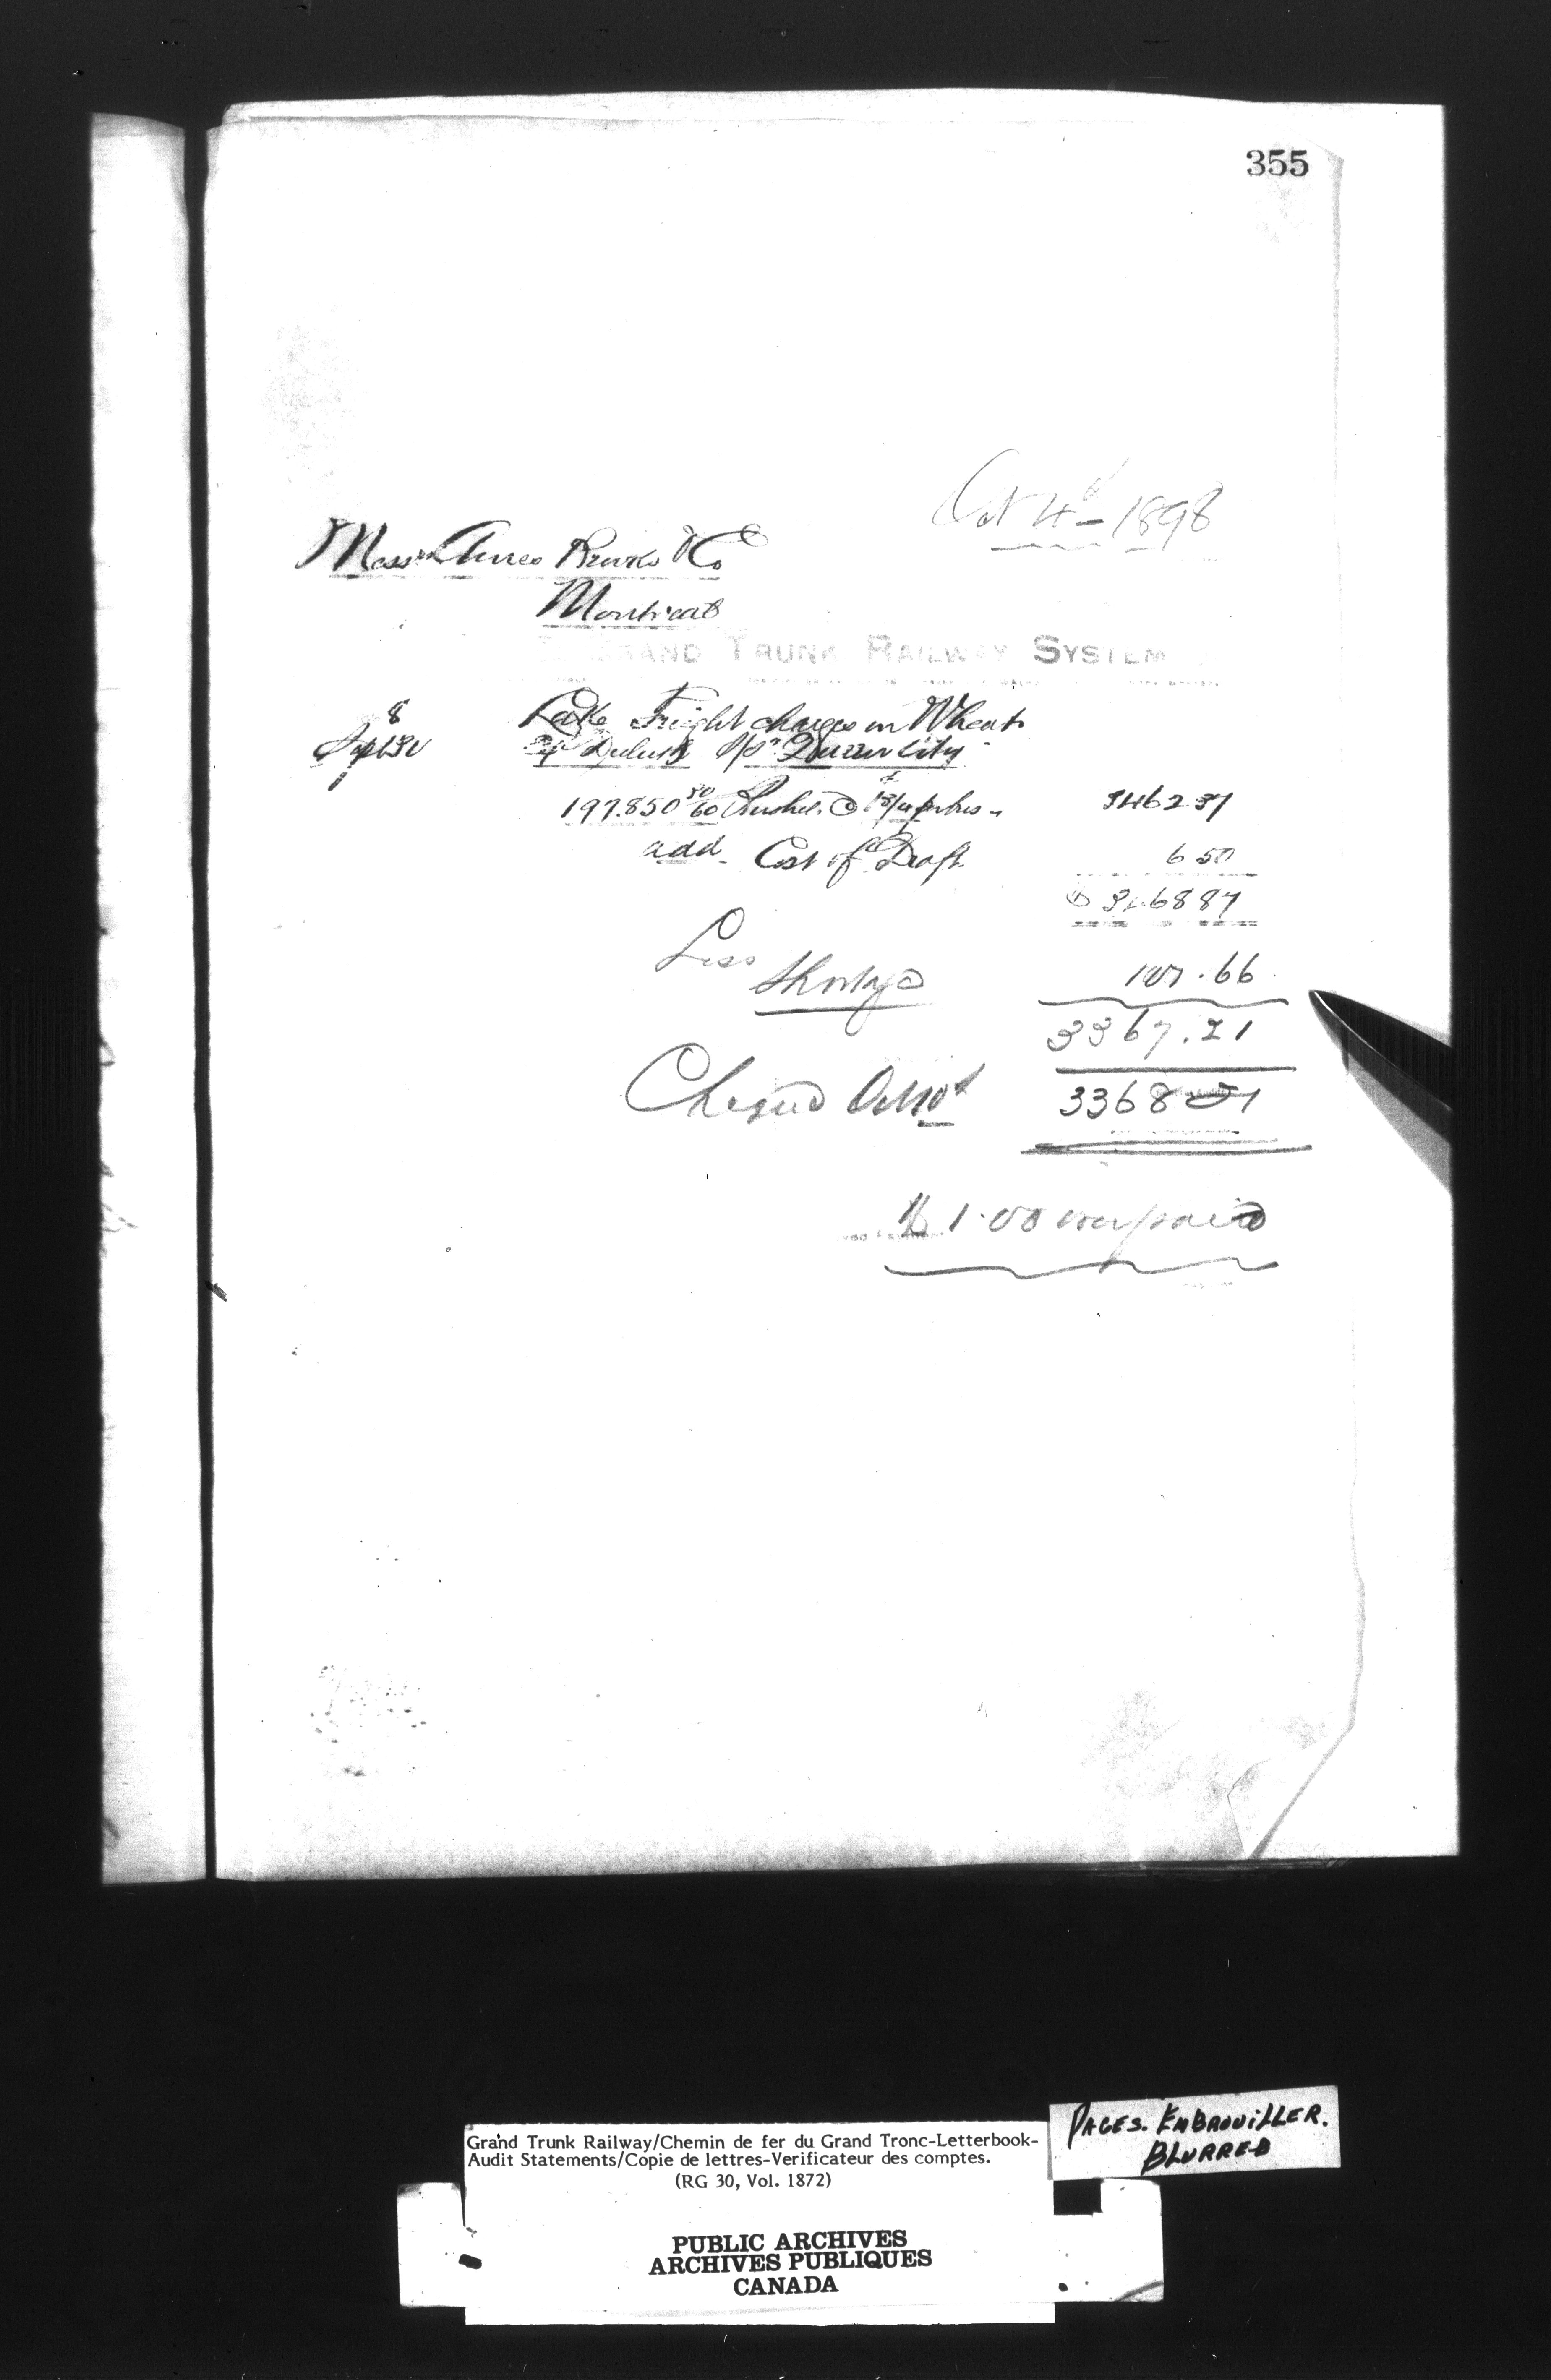 355
Oct 4th 1898
Messrs Ames Brooks & Co
Montreal
GRAND TRUNK RAILWAY SYSTEM
8
Lake Freight charges on Wheat
Duluth Str Queen City
197.850 50/60 Bushels @ 1 3/4 ¢ p bus 3462 37
add Cost of Draft 6 50
$ 3468 87
Less
Shortage 101.66
3367.21
Cheque Amot 3368 21
$ 1.00 overpaid
Grand Trunk Railway/Chemin de fer du Grand Tronc-Letterbook-
Audit Statements/Copie de lettres-Verificateur des comptes.
(RG 30, Vol. 1872)
PAGES. EMBROUILLER.
BLURRED
PUBLIC ARCHIVES
ARCHIVES PUBLIQUES
CANADA